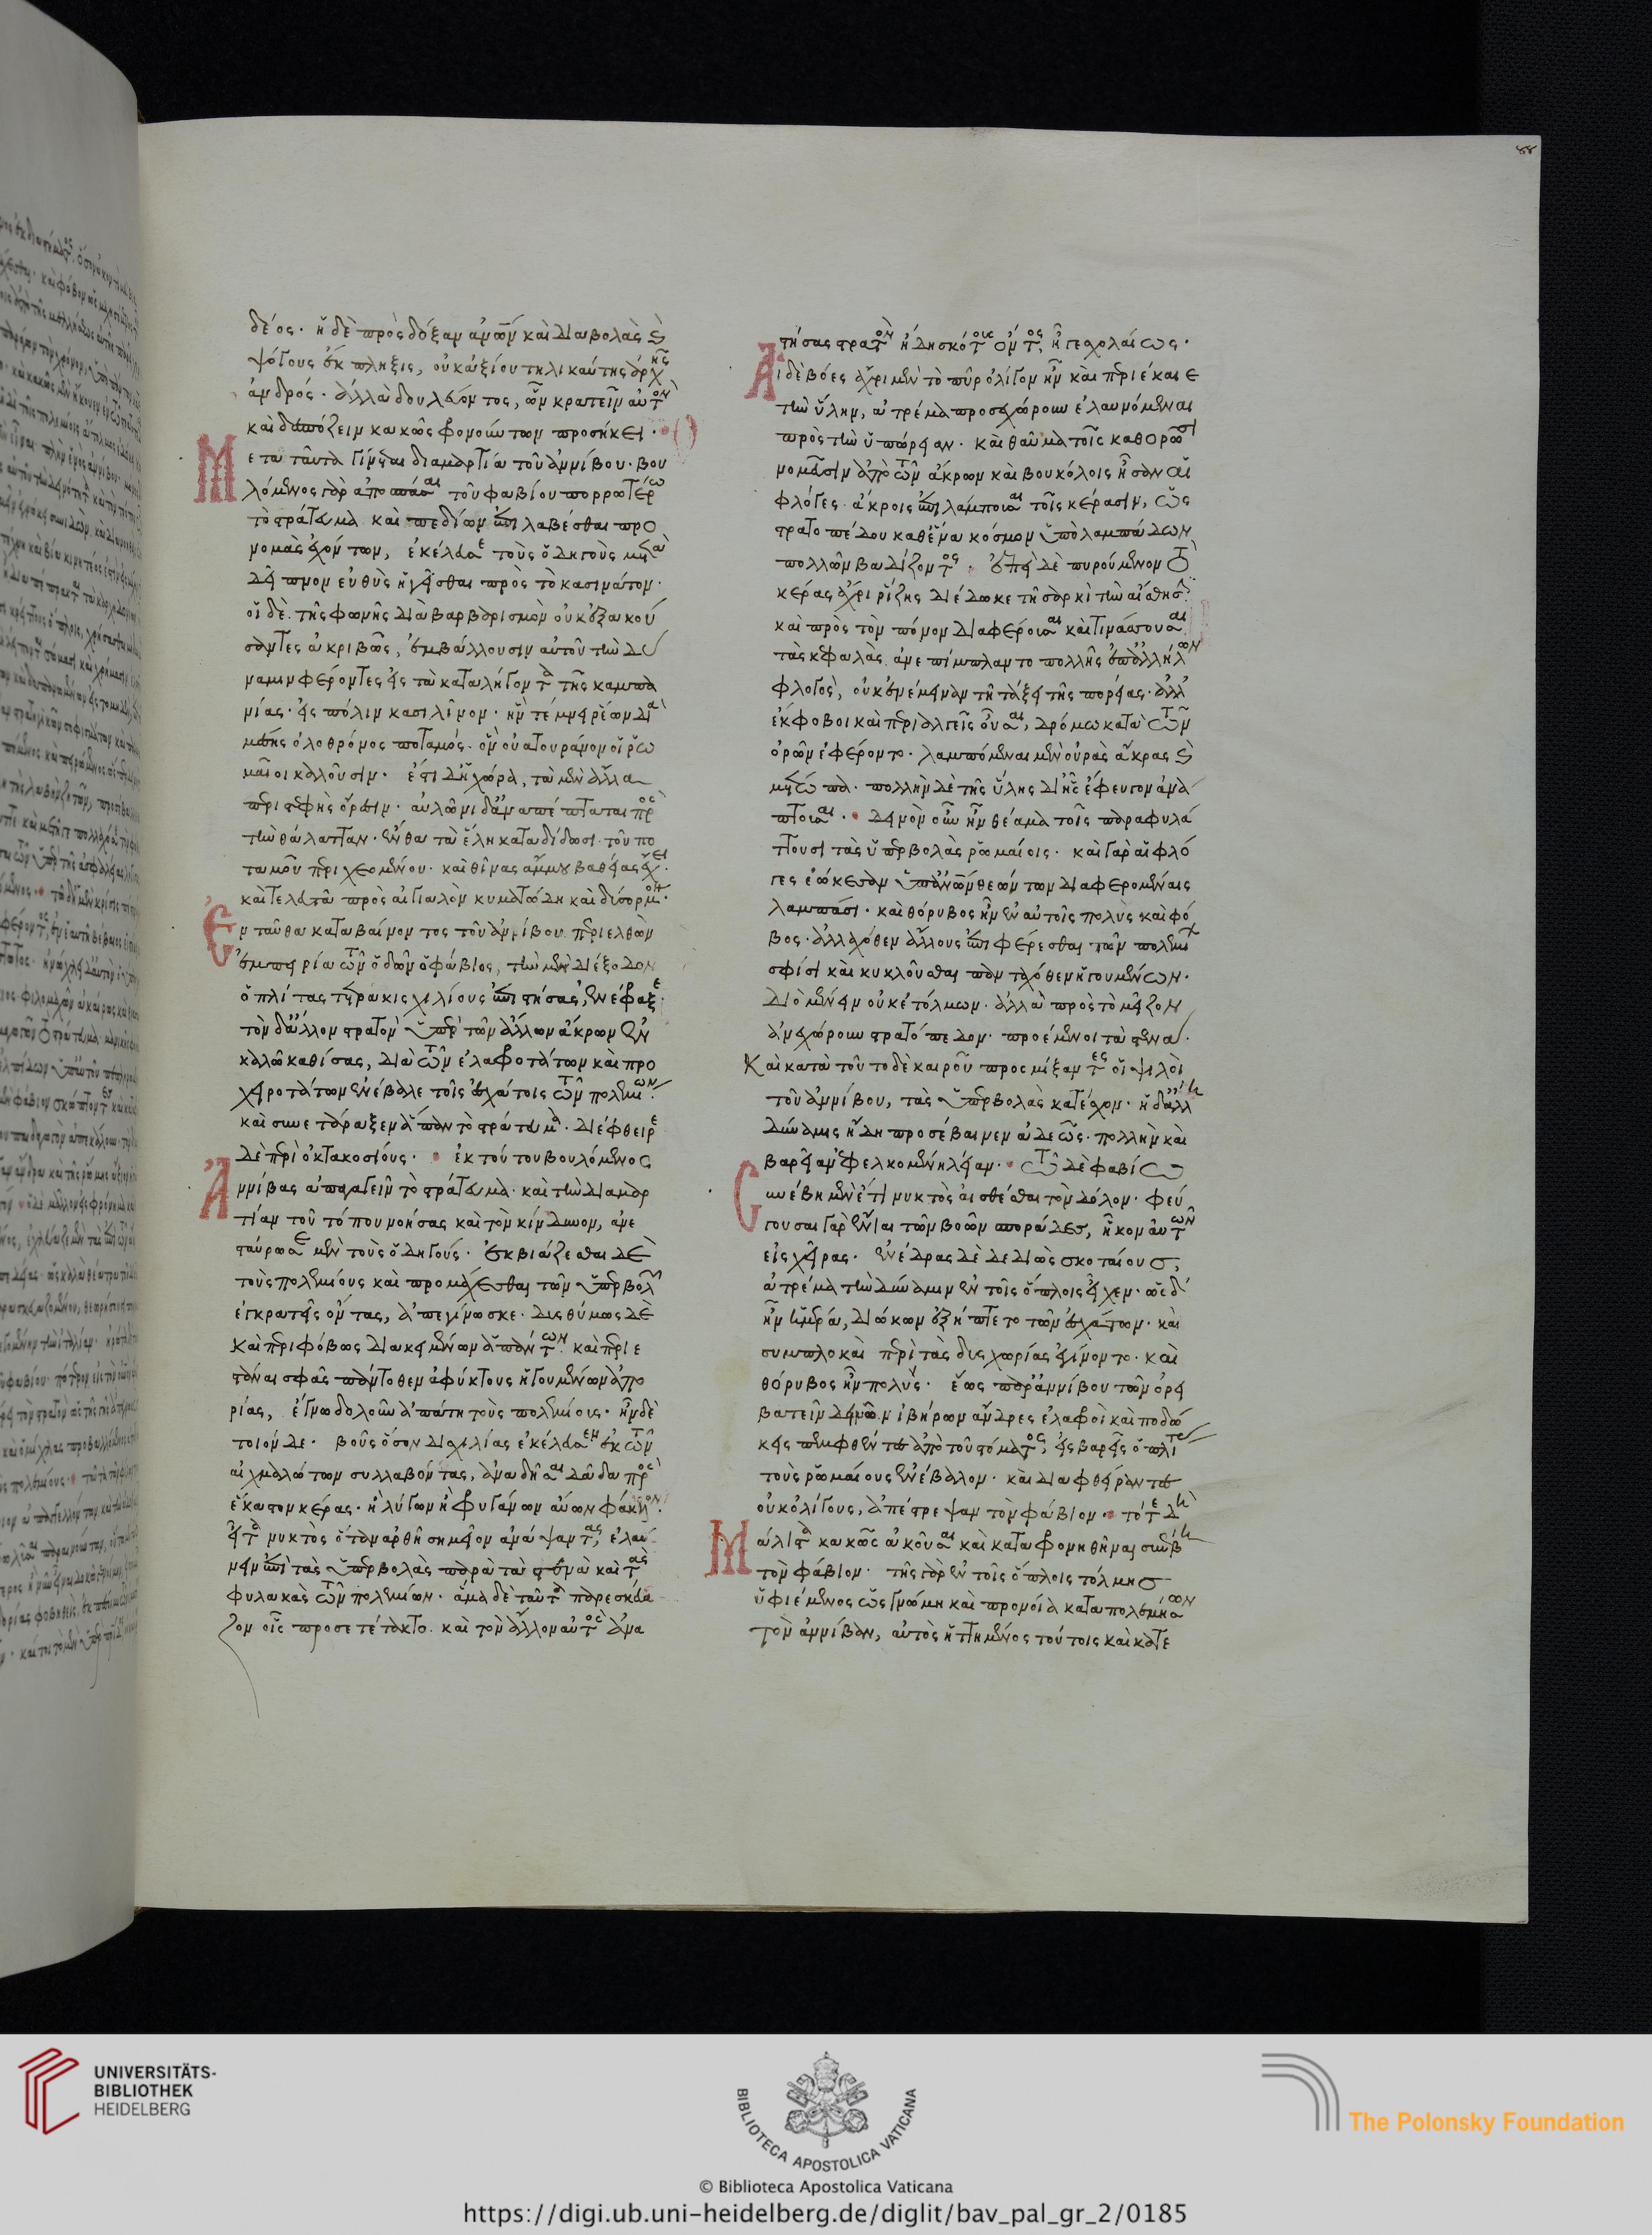 δέος. ἡ δὲ πρὸς δόξαν ἀνθρώπων καὶ διαβολὰς καὶ
ψόγους ἔκπληξις, οὐκ ἀξίου τηλικαύτης ἀρχῆς
ἀνδρός. ἀλλὰ δουλεύοντος, ὧν κρατεῖν αὐτὸν
καὶ δεσπόζειν κακῶς φρονούντων προσήκει.
Μετὰ ταῦτα γίνεται διαμαρτία τοῦ ἀννίβου. βου
λόμενος γὰρ ἀποσπάσαι τοῦ φαβίου πορρωτέρω
τὸ στράτευμα καὶ πεδίων ἐπιλαβέσθαι προ
νομὰς ἐχόντων, ἐκέλευσε τοὺς ὁδηγοὺς μετὰ
δεῖπνον εὐθὺς ἡγεῖσθαι πρὸς τὸ κασινάτον.
οἱ δὲ τῆς φωνῆς διὰ βαρβαρισμὸν οὐκ ἐξακού
σαντες ἀκριβῶς, ἐμβάλλουσιν αὐτοῦ τὴν δύ
ναμιν φέροντες εἰς τὰ καταλήγοντα τῆς καμπα
νίας. εἰς πόλιν κασιλῖνον. ἣν τέμνει ῥέων διὰ
μέσης ὀλοθρόνος ποταμός. ὃν οὐατουράνον οἱ ῥω
μαῖοι καλοῦσιν. ἔστι δ' ἡ χώρα, τὰ μὲν ἄλλα
περιστεφὴς ὄρεσιν. αὐλὼν δ' ἀναπέπταται πρὸς
τὴν θάλατταν. ἔνθα τὰ ἕλη καταδίδωσι τοῦ πο
ταμοῦ περιχεομένου. καὶ θῖνας ἄμμου βαθείας ἔχει.
καὶ τελευτᾷ πρὸς αἰγιαλὸν κυματώδη καὶ δύσορμον.
Ἐνταῦθα καταβαίνοντος τοῦ ἀννίβου περιελθὼν
ἐμπειρίᾳ τῶν ὁδῶν ὁ φάβιος, τὴν μὲν διέξοδον
ὁπλίτας τετρακισχιλίους ἐπιστήσας, ἐνέφραξε.
τὸν δ' ἄλλον στρατὸν ὑπὲρ τῶν ἄλλων ἄκρων ἐν
καλῷ καθίσας, διὰ τῶν ἐλαφροτάτων καὶ προ
χειροτάτων ἐνέβαλε τοῖς ἐσχάτοις τῶν πολεμίων.
καὶ συνετάραξεν ἅπαν τὸ στράτευμα. διέφθειρε
δὲ περὶ ὀκτακοσίους. ἐκ τούτου βουλόμενος
Ἀννίβας ἀπαγαγεῖν τὸ στράτευμα. καὶ τὴν διαμαρ
τίαν τοῦ τόπου νοήσας καὶ τὸν κίνδυνον, ἀνε
σταύρωσε μὲν τοὺς ὁδηγούς. ἐκβιάζεσθαι δὲ
τοὺς πολεμίους καὶ προμάχεσθαι τῶν ὑπερβολῶν
ἐγκρατεῖς ὄντας, ἀπεγίνωσκε. δυσθύμως δὲ
καὶ περιφόβως διακειμένων ἁπάντων. καὶ περιε
στάναι σφᾶς πάντοθεν ἀφύκτους ἡγουμένων ἀπο
ρίας, ἔγνω δολοῦν ἀπάτῃ τοὺς πολεμίους. ἦν δὲ
τοιόνδε. βοῦς ὅσον δισχιλίας ἐκέλευσεν ἐκ τῶν
αἰχμαλώτων συλλαβόντας, ἀναδῆσαι δᾷδα πρὸς
ἕκαστον κέρας. ἢ λύγων ἢ φρυγάνων αὔων φάκελον.
εἶτα νυκτὸς ὅταν ἀρθῇ σημεῖον ἀνάψαντας, ἐλαύ
νειν ἐπὶ τὰς ὑπερβολὰς παρὰ τὰ στενὰ καὶ τὰς
φυλακὰς τῶν πολεμίων. ἅμα δὲ ταῦτα παρεσκεύα
ζον οἷς προσετέτακτο. καὶ τὸν ἄλλον αὐτὸς ἀνα
στήσας στρατὸν ἤδη σκότους ὄντος, ἦγε σχολαίως.
Αἱ δὲ βόες ἄχρι μὲν τὸ πῦρ ὀλίγον ἦν καὶ περιέκαιε
τὴν ὕλην, ἀτρέμα προσεχώρουν ἐλαυνόμεναι
πρὸς τὴν ὑπώρειαν. καὶ θαῦμα τοῖς καθορῶσι
νομεῦσιν ἀπὸ τῶν ἄκρων καὶ βουκόλοις ἦσαν αἱ
φλόγες ἄκροις ἐπιλάμπουσαι τοῖς κέρασιν, ὡς
στρατοπέδου καθ' ἕνα κόσμον ὑπὸ λαμπάδων
πολλῶν βαδίζοντος. ἐπεὶ δὲ πυρούμενον τὸ
κέρας ἄχρι ῥίζης διέδωκε τῇ σαρκὶ τὴν αἴσθησιν.
καὶ πρὸς τὸν πόνον διαφέρουσαι καὶ τινάσσουσαι
τὰς κεφαλὰς ἀνεπίμπλαντο πολλῆς ἀπ' ἀλλήλων
φλογὸς, οὐκ ἐνέμειναν τῇ τάξει τῆς πορείας. ἀλλ'
ἔκφοβοι καὶ περιαλγεῖς οὖσαι, δρόμῳ κατὰ τῶν
ὀρῶν ἐφέροντο. λαμπόμεναι μὲν οὐρὰς ἄκρας καὶ
μέτωπα. πολλὴν δὲ τῆς ὕλης δι' ἧς ἔφευγον ἀνά
πτουσαι. δεινὸν οὖν ἦν θέαμα τοῖς παραφυλά
ττουσι τὰς ὑπερβολὰς ῥωμαίοις. καὶ γὰρ αἱ φλό
γες ἐῴκεσαν ὑπ' ἀνθρώπων θεόντων διαφερομέναις
λαμπάσι. καὶ θόρυβος ἦν ἐν αὐτοῖς πολὺς καὶ φό
βος. ἀλλαχόθεν ἄλλους ἐπιφέρεσθαι τῶν πολεμίων
σφίσι καὶ κυκλοῦσθαι πανταχόθεν ἡγουμένων.
διὸ μένειν οὐκ ἐτόλμων. ἀλλὰ πρὸς τὸ μεῖζον
ἀνεχώρουν στρατόπεδον. προέμενοι τὰ στενά.
Καὶ κατὰ τοῦτο δὲ καιροῦ προσμίξαντες οἱ ψιλοὶ
τοῦ ἀννίβου, τὰς ὑπερβολὰς κατέσχον. ἡ δ' ἄλλη
δύναμις ἤδη προσέβαινεν ἀδεῶς. πολλὴν καὶ
βαρεῖαν ἐφελκομένη λείαν. τῷ δὲ φαβίῳ
Συνέβη μὲν ἔτι νυκτὸς αἰσθέσθαι τὸν δόλον. φεύ
γουσαι γὰρ ἔνιαι τῶν βοῶν σποράδες, ἧκον αὐτῶν
εἰς χεῖρας. ἐνέδρας δὲ δεδιὼς σκοταίους,
ἀτρέμα τὴν δύναμιν ἐν τοῖς ὅπλοις εἶχεν. ὡς δ'
ἦν ἡμέρα, διώκων ἐξήπτετο τῶν ἐσχάτων. καὶ
συμπλοκαὶ περὶ τὰς δυσχωρίας ἐγίνοντο. καὶ
θόρυβος ἦν πολύς. ἕως παρ' ἀννίβου τῶν ὀρει
βατεῖν δεινῶν ἰβήρων ἄνδρες ἐλαφροὶ καὶ ποδώ
κεις πεμφθέντες ἀπὸ τοῦ στόματος, εἰς βαρεῖς ὁπλί
τους ῥωμαίους ἐνέβαλον. καὶ διαφθείραντες
οὐκ ὀλίγους, ἀπέστρεψαν τὸν φάβιον. τότε δὴ
Μάλιστα κακῶς ἀκοῦσαι καὶ καταφρονηθῆναι συνέβη
τὸν φάβιον. τῆς γὰρ ἐν τοῖς ὅπλοις τόλμης
ὑφιέμενος ὡς γνώμῃ καὶ προνοίᾳ καταπολεμήσων
τὸν ἀννίβαν, αὐτὸς ἡττημένος τούτοις καὶ κατε
UNIVERSITÄTS-
BIBLIOTHEK
HEIDELBERG
BIBLIOTECA APOSTOLICA VATICANA
The Polonsky Foundation
© Biblioteca Apostolica Vaticana
https://digi.ub.uni-heidelberg.de/diglit/bav_pal_gr_2/0185